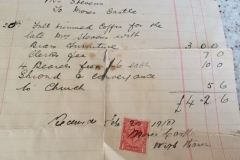 Mr Stevens
To Moses Castle
20 Full trimmed Coffin for the
late Mrs Stevens with
Brass Furniture 3 0 0
Clerks fee 7 0
4 Bearers fees 10 0
Shroud & conveyance
to Church 5 6
£4-2.6
Received Feb 20 1918
Moses Castle